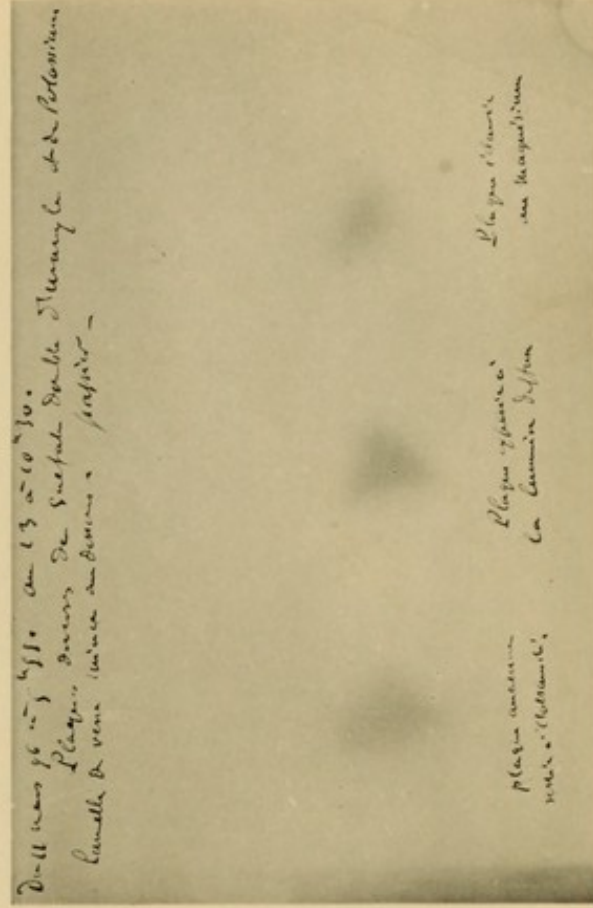 Du 11 mars 96 à au 13 à 10h 30.
Plaques diverses de Sulfate double d'uranyle et de Potassium
Lamelle de verre mince au dessous. papier —
plaque ancienne
restée à l'obscurité.
Plaque exposée à
la lumière diffuse
Plaque éclairée
au magnésium